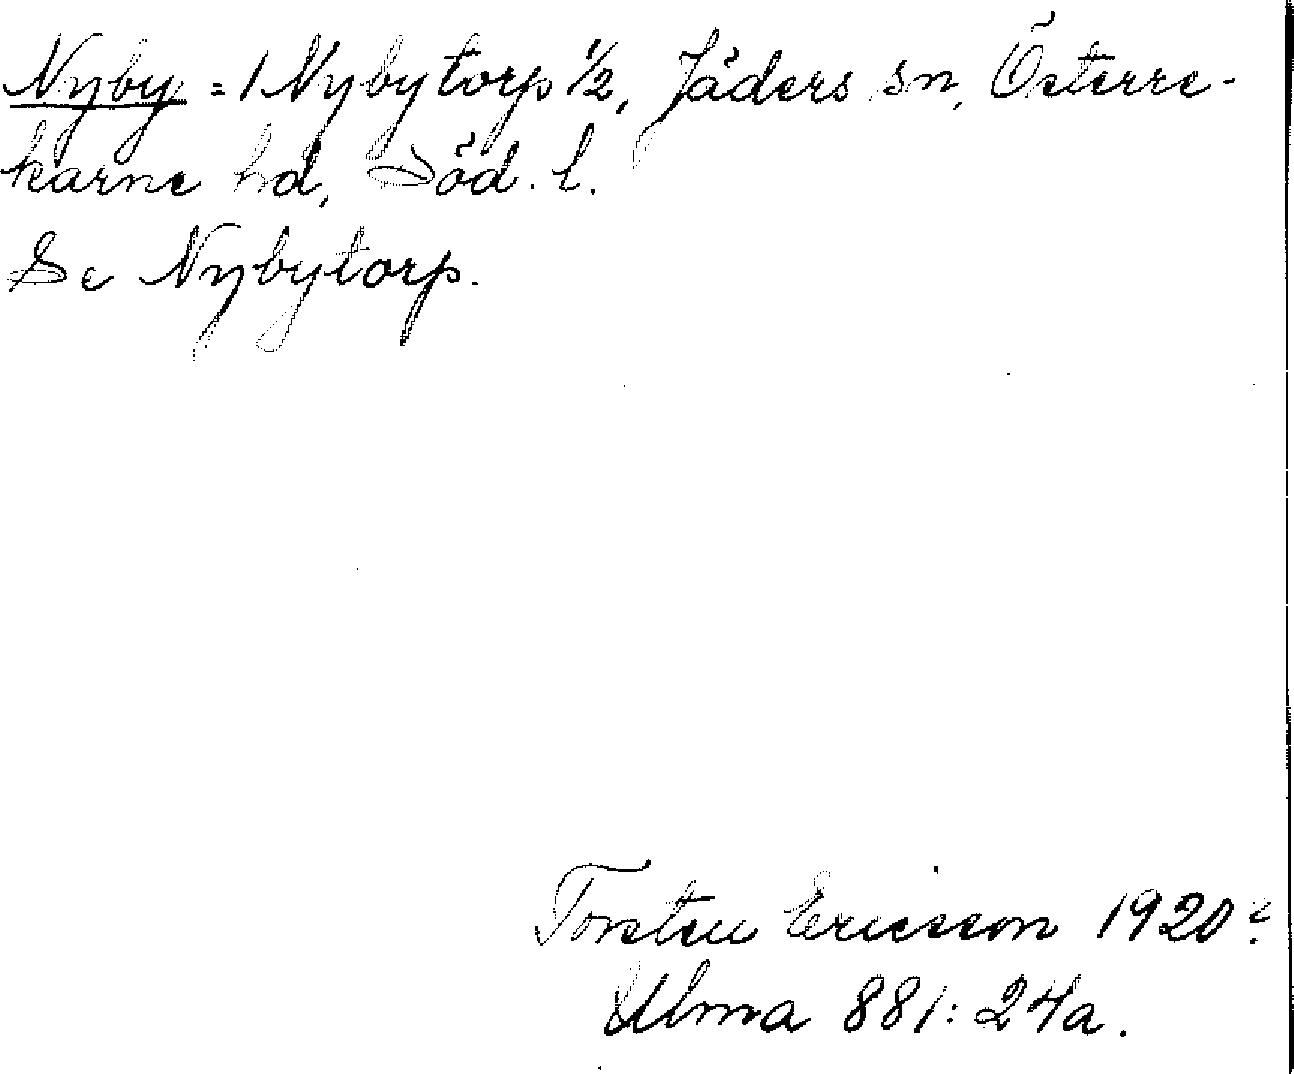 Nyby = 1 Nybytorp ½, Jäders sn, Österre-
karne hd, Söd. l.
Se Nybytorp.
Torsten Ericsson 1920?
Ulma 881:24a.